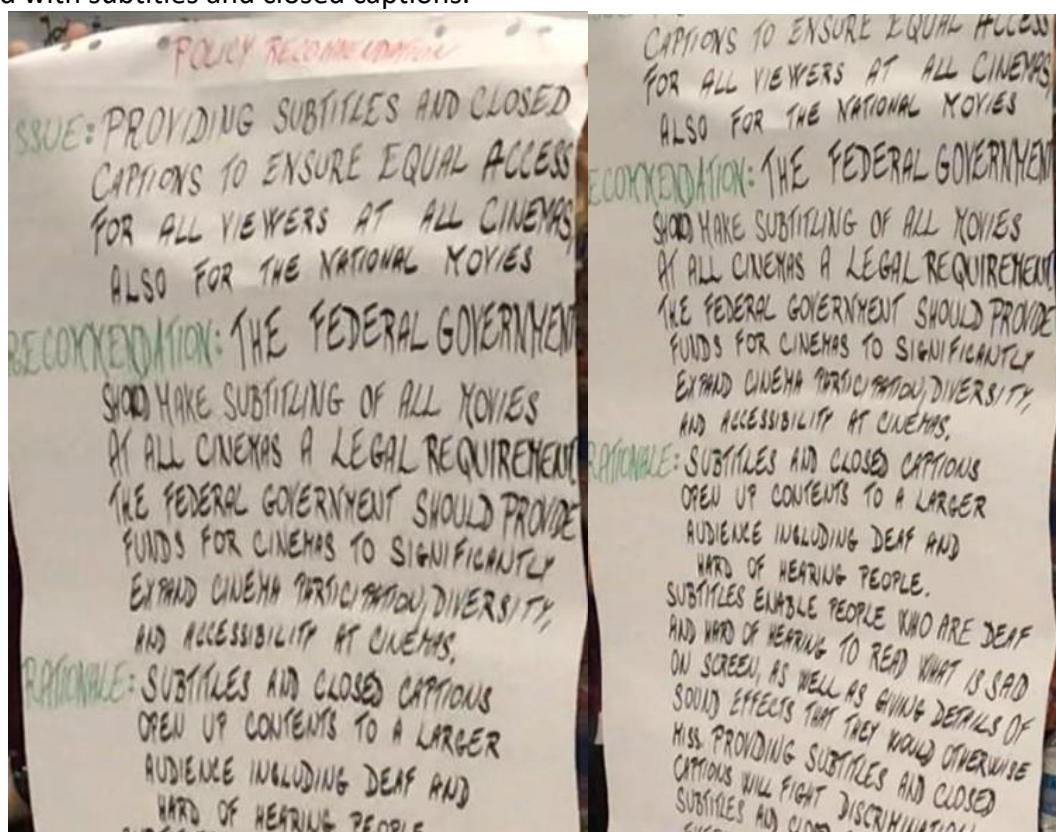 d with subtitles and closed captions.
POLICY RECOMMENDATION
ISSUE: PROVIDING SUBTITLES AND CLOSED
CAPTIONS TO ENSURE EQUAL ACCESS
FOR ALL VIEWERS AT ALL CINEMAS,
ALSO FOR THE NATIONAL MOVIES
RECOMMENDATION: THE FEDERAL GOVERNMENT
SHOULD MAKE SUBTITLING OF ALL MOVIES
AT ALL CINEMAS A LEGAL REQUIREMENT
THE FEDERAL GOVERNMENT SHOULD PROVIDE
FUNDS FOR CINEMAS TO SIGNIFICANTLY
EXPAND CINEMA PARTICIPATION, DIVERSITY,
AND ACCESSIBILITY AT CINEMAS.
RATIONALE: SUBTITLES AND CLOSED CAPTIONS
OPEN UP CONTENTS TO A LARGER
AUDIENCE INCLUDING DEAF AND
HARD OF HEARING PEOPLE.
CAPTIONS TO ENSURE EQUAL ACCESS
FOR ALL VIEWERS AT ALL CINEMAS,
ALSO FOR THE NATIONAL MOVIES
ECOMMENDATION: THE FEDERAL GOVERNMENT
SHOULD MAKE SUBTITLING OF ALL MOVIES
AT ALL CINEMAS A LEGAL REQUIREMENT
THE FEDERAL GOVERNMENT SHOULD PROVIDE
FUNDS FOR CINEMAS TO SIGNIFICANTLY
EXPAND CINEMA PARTICIPATION, DIVERSITY,
AND ACCESSIBILITY AT CINEMAS.
RATIONALE: SUBTITLES AND CLOSED CAPTIONS
OPEN UP CONTENTS TO A LARGER
AUDIENCE INCLUDING DEAF AND
HARD OF HEARING PEOPLE.
SUBTITLES ENABLE PEOPLE WHO ARE DEAF
AND HARD OF HEARING TO READ WHAT IS SAD
ON SCREEN, AS WELL AS GIVING DETAILS OF
SOUND EFFECTS THAT THEY WOULD OTHERWISE
MISS. PROVIDING SUBTITLES AND CLOSED
CAPTIONS WILL FIGHT DISCRIMINATION
SUBTITLES AND